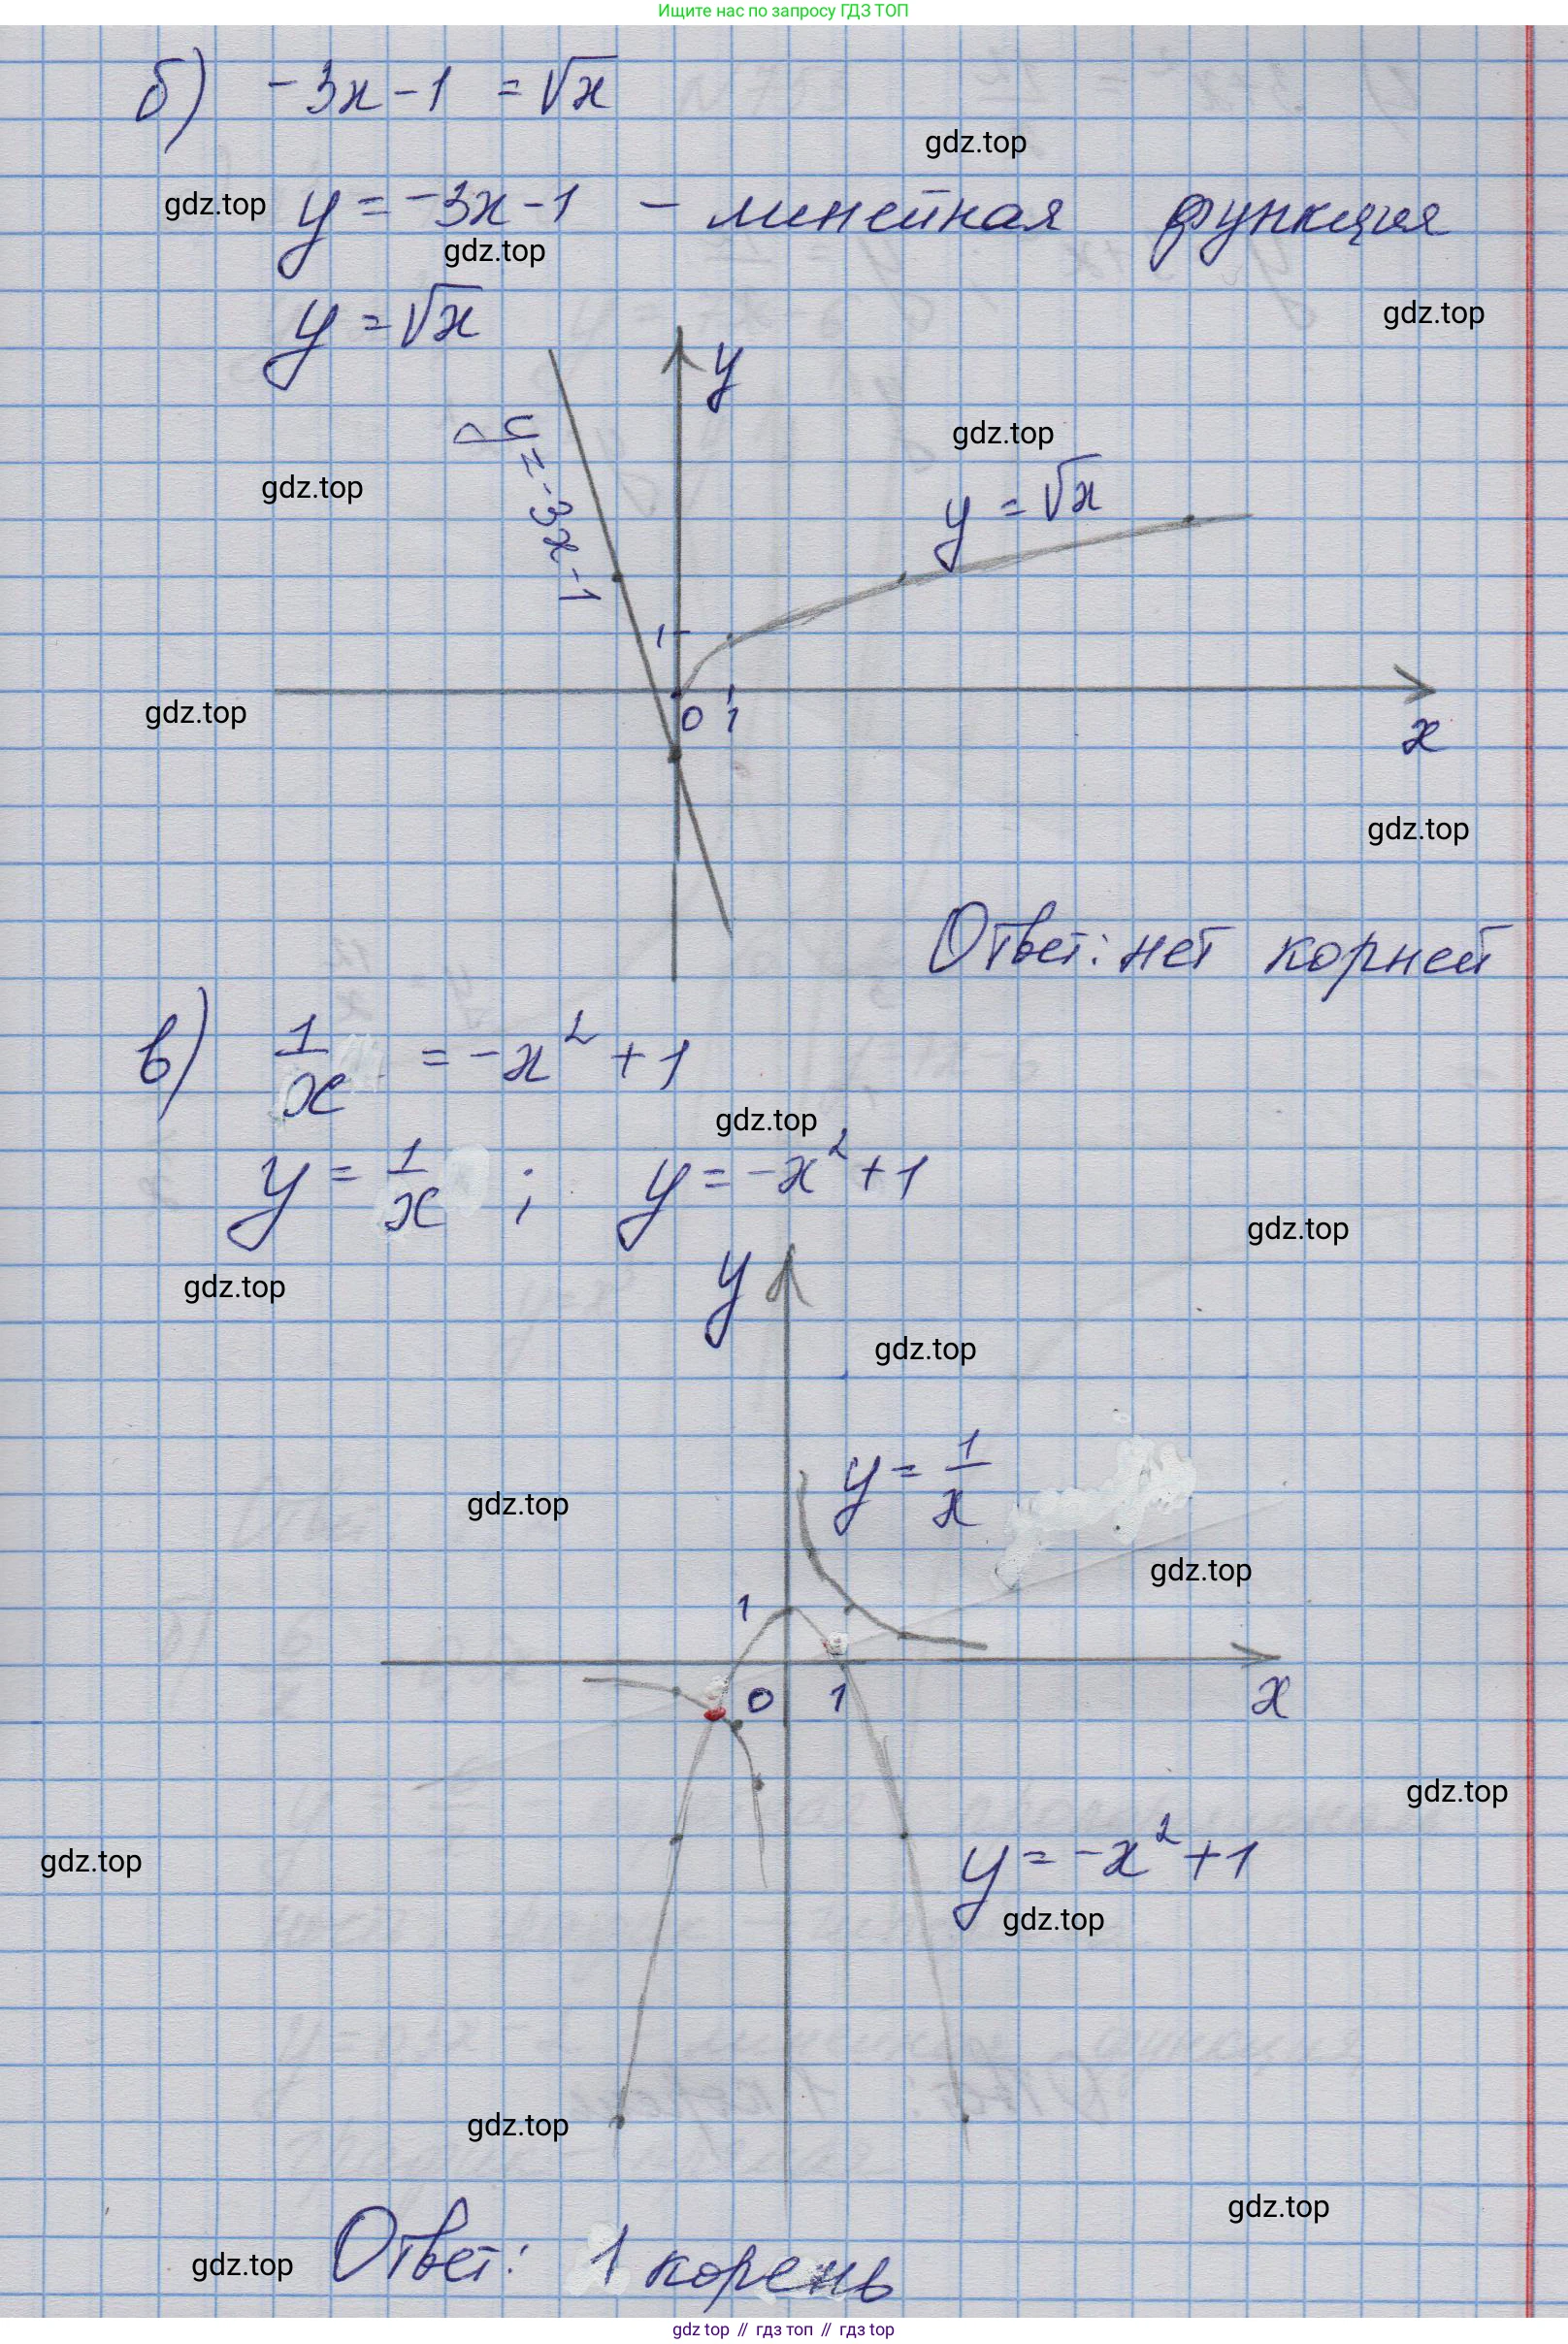 Ищите нас по запросу ГДЗ ТОП
б) -3x-1 = √x
gdz.top
gdz.top y = -3x-1 - линейная функция
gdz.top
y = √x
gdz.top
y
gdz.top
gdz.top
y = -3x-1
y = √x
1
0 1
gdz.top
x
gdz.top
Ответ: нет корней
в) 1/x = -x² + 1
gdz.top
y = 1/x ; y = -x² + 1
gdz.top
gdz.top
y
gdz.top
y = 1/x
gdz.top
gdz.top
1
0 1
x
gdz.top
gdz.top
y = -x² + 1
gdz.top
gdz.top
gdz.top
gdz.top
Ответ: 1 корень
gdz top // гдз топ // гдз top